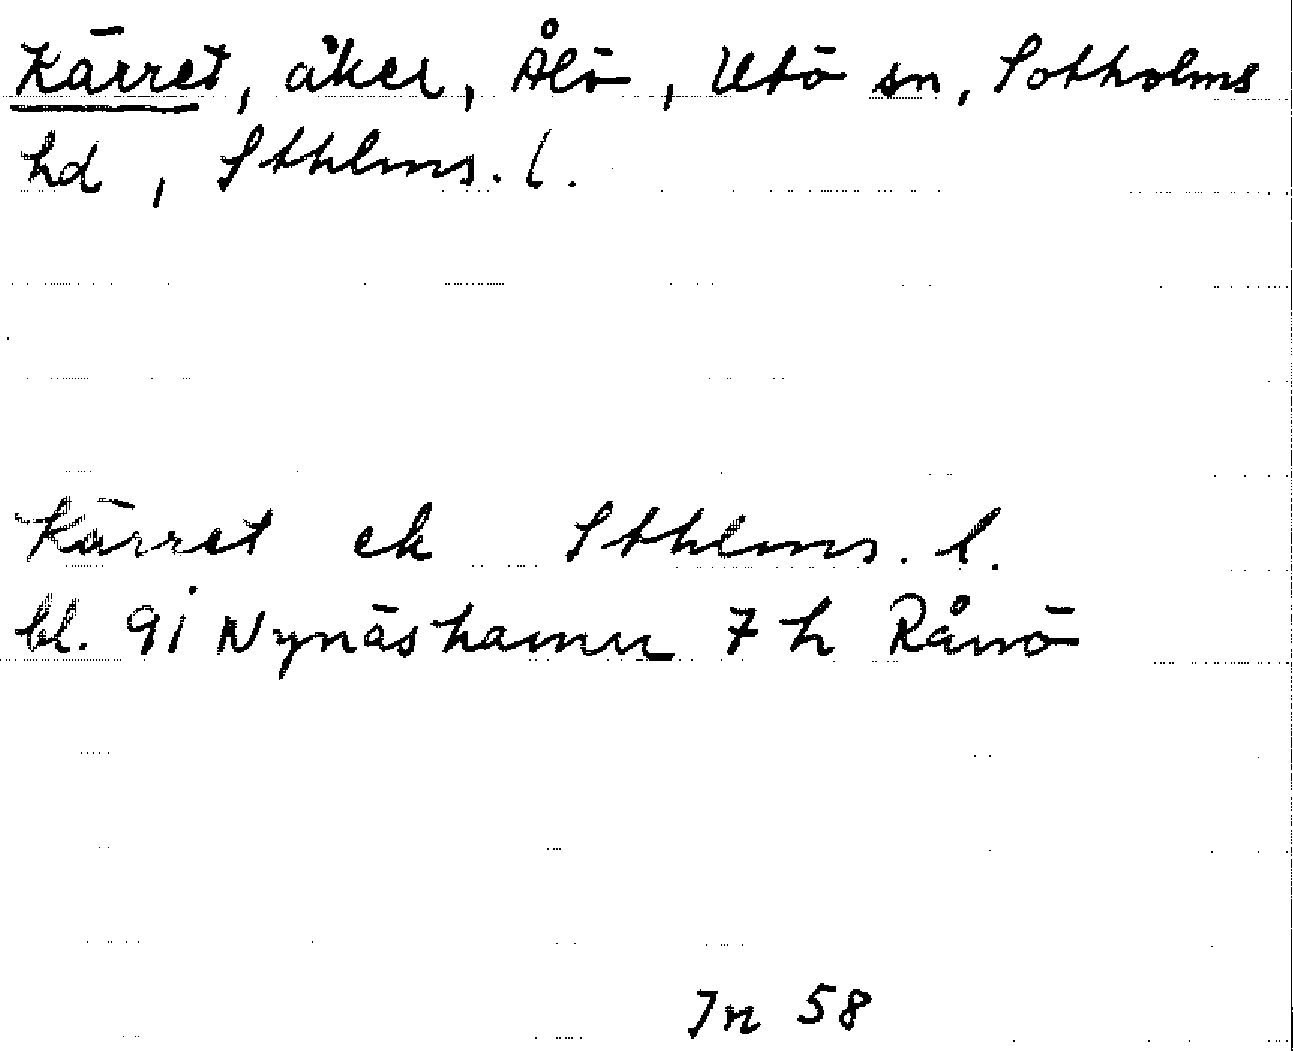 Kärret, åker, Ålö, Utö sn, Sotholms
hd, Sthlms. l.
Kärret ek Sthlms. l.
bl. 9i Nynäshamn 7 h Rånö
In 58